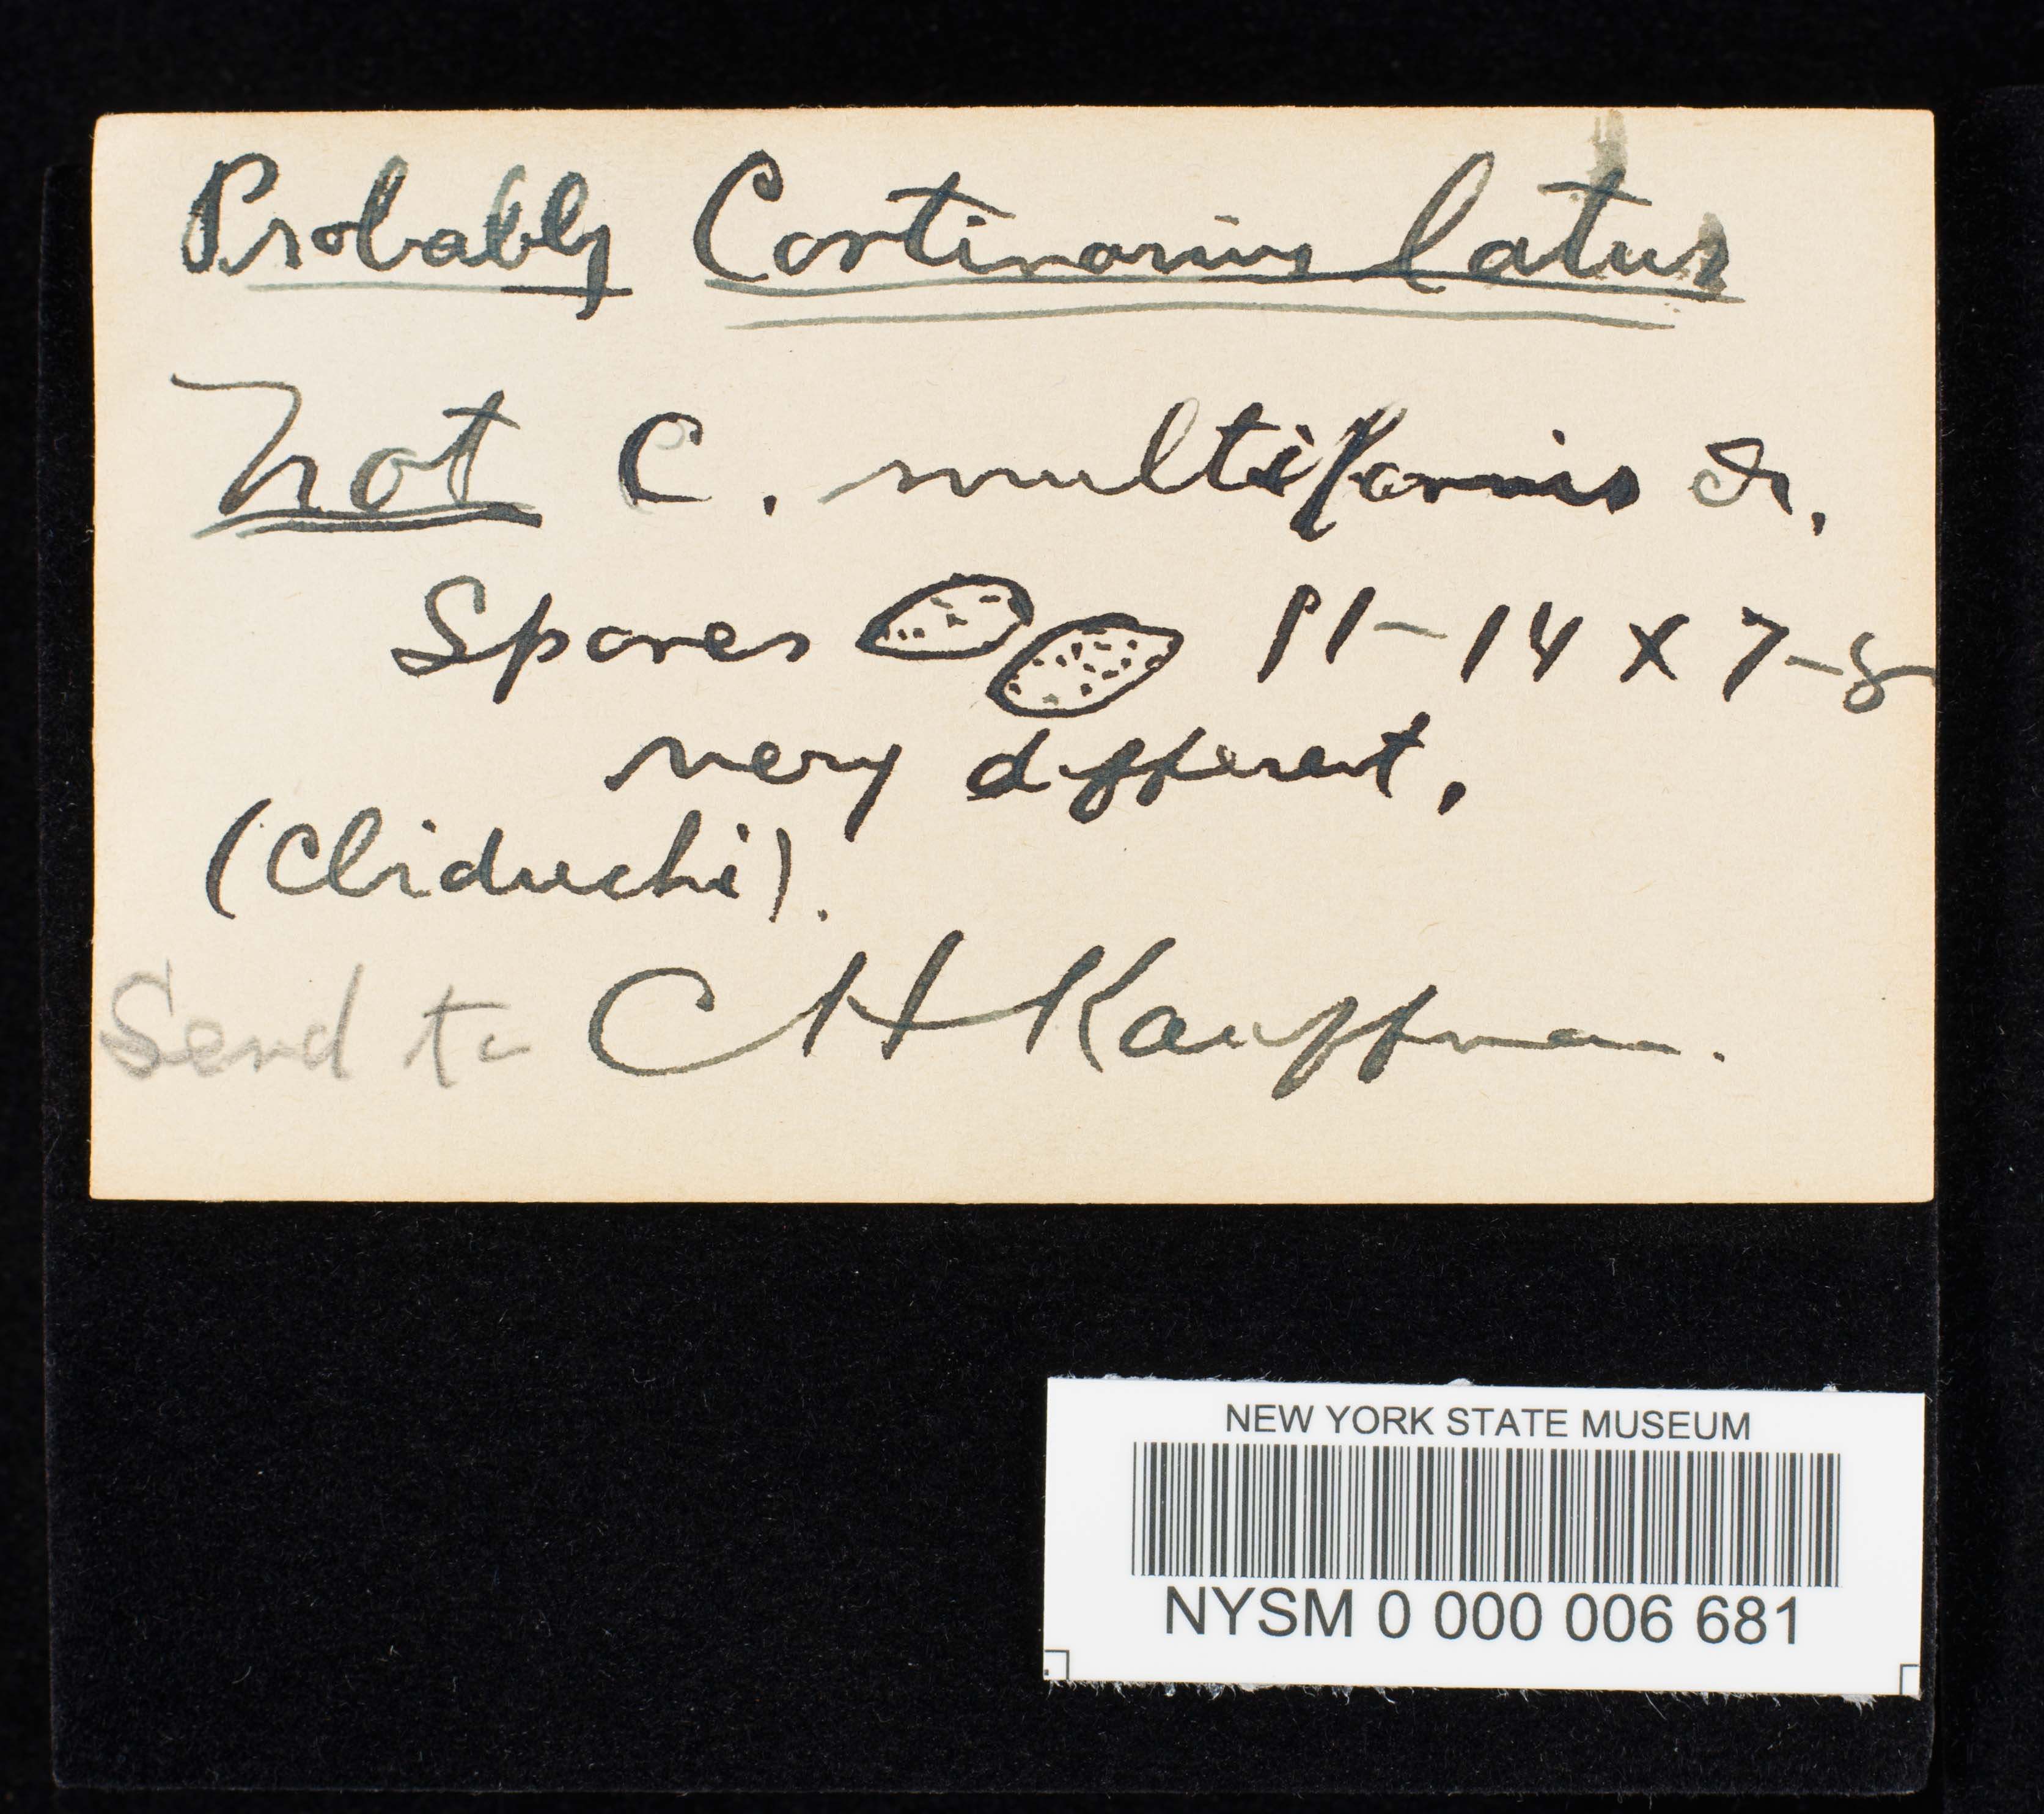 Probably Cortinarius latus
Not C. multiformis Fr.
Spores 11-14 x 7-8
very different.
(Cliduchi).
Send to C H Kauffman.
NEW YORK STATE MUSEUM
NYSM 0 000 006 681